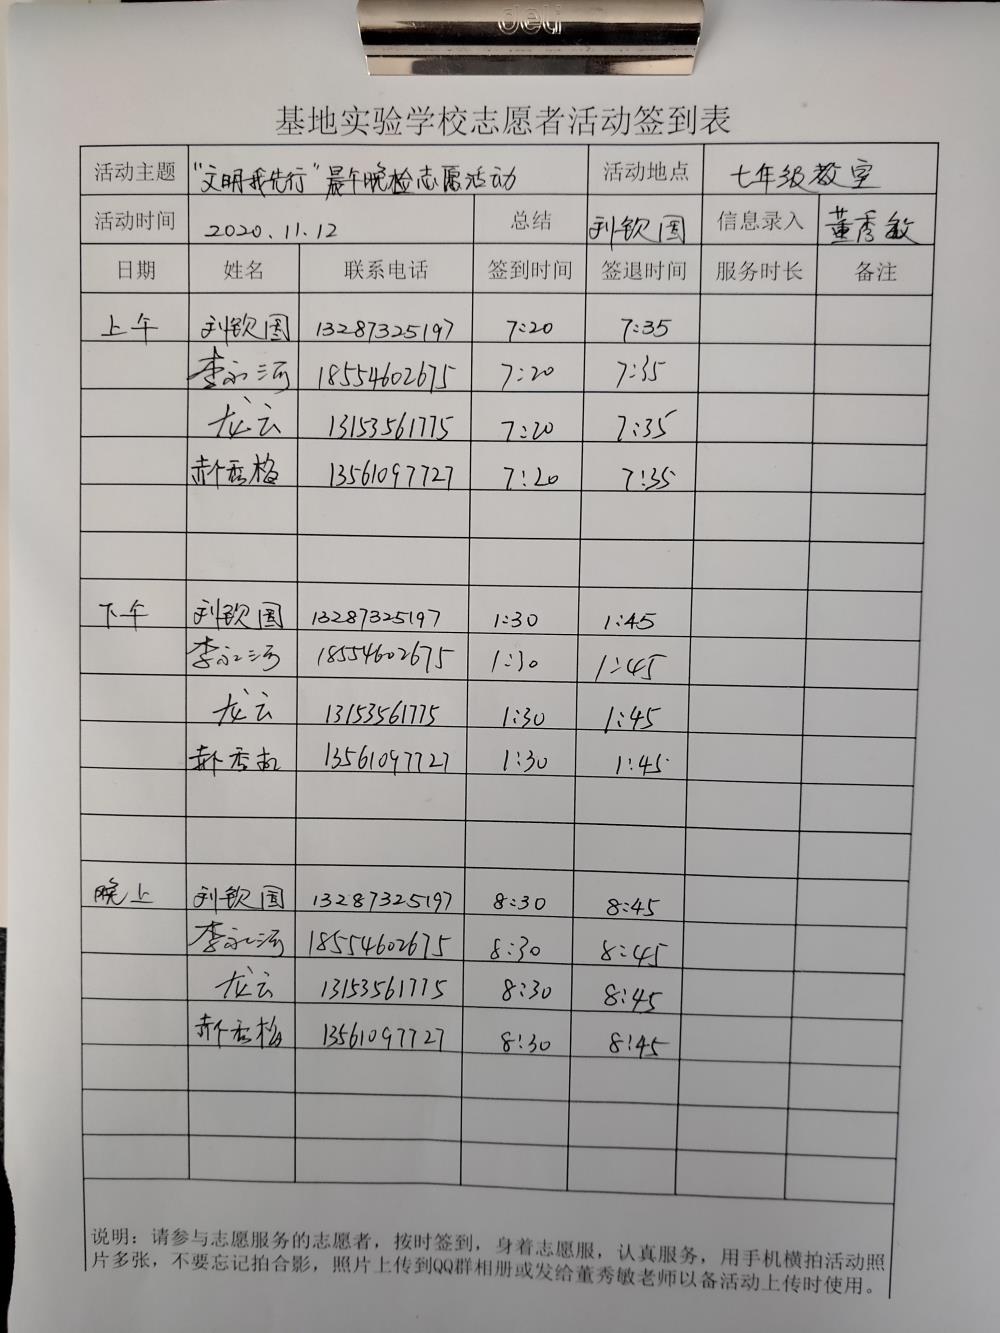 deli
基地实验学校志愿者活动签到表
活动主题 "文明我先行"晨午晚检志愿活动 活动地点 七年级教室
活动时间 2020.11.12 总结 刘钦国 信息录入 董秀敏
日期 姓名 联系电话 签到时间 签退时间 服务时长 备注
上午 刘钦国 13287325197 7:20 7:35
李永河 18554602675 7:20 7:35
龙云 13153561775 7:20 7:35
郝秀梅 13561097727 7:20 7:35
下午 刘钦国 13287325197 1:30 1:45
李永河 18554602675 1:30 1:45
龙云 13153561775 1:30 1:45
郝秀梅 13561097727 1:30 1:45
晚上 刘钦国 13287325197 8:30 8:45
李永河 18554602675 8:30 8:45
龙云 13153561775 8:30 8:45
郝秀梅 13561097727 8:30 8:45
说明：请参与志愿服务的志愿者，按时签到，身着志愿服，认真服务，用手机横拍活动照
片多张，不要忘记拍合影，照片上传到QQ群相册或发给董秀敏老师以备活动上传时使用。